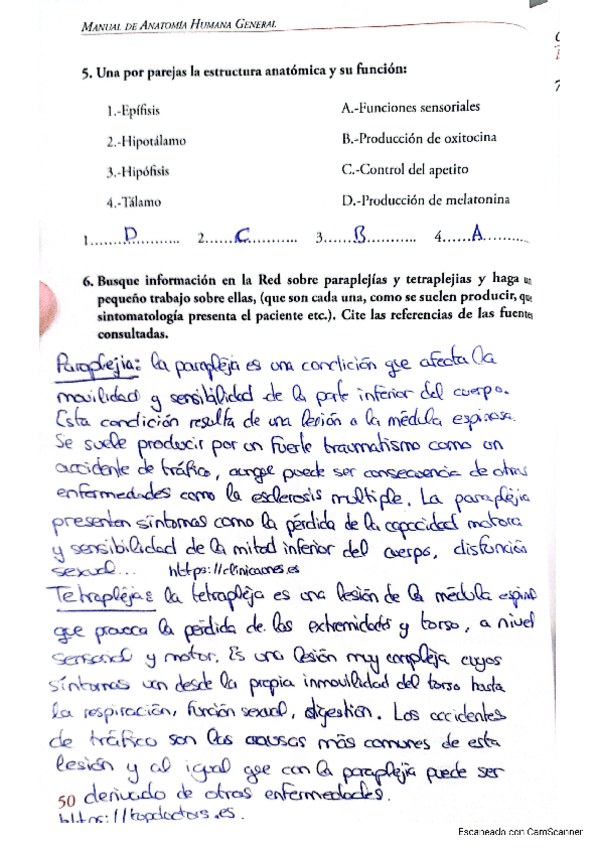 MANUAL DE ANATOMÍA HUMANA GENERAL
5. Una por parejas la estructura anatómica y su función:
1.-Epífisis
A.-Funciones sensoriales
2.-Hipotálamo
B.-Producción de oxitocina
3.-Hipófisis
C.-Control del apetito
4.-Tálamo
D.-Producción de melatonina
1......D............ 2......C........... 3......B........... 4......A...........
6. Busque información en la Red sobre paraplejías y tetraplejias y haga un
pequeño trabajo sobre ellas, (que son cada una, como se suelen producir, que
sintomatología presenta el paciente etc.). Cite las referencias de las fuentes
consultadas.
Paraplejia: la paraplejia es una condición que afecta la
movilidad y sensibilidad de la parte inferior del cuerpo.
Esta condición resulta de una lesión a la médula espinosa.
Se suele producir por un fuerte traumatismo como un
accidente de tráfico, aunque puede ser consecuencia de otras
enfermedades como la esclerosis multiple. La paraplejia
presenten síntomas como la pérdida de la capacidad motora
y sensibilidad de la mitad inferior del cuerpo, disfunción
sexual... https://clinicaunes.es
Tetraplejias: la tetrapleja es una lesión de la médula espinal
que provoca la pérdida de las extremidades y torso, a nivel
sensorial y motor. Es una lesión muy compleja cuyos
síntomas van desde la propia inmovilidad del torso hasta
la respiración, función sexual, digestión. Los accidentes
de tráfico son las causas más comunes de esta
lesión y al igual que con la paraplejía puede ser
50 derivado de otras enfermedades.
https://topdoctors.es.
Escaneado con CamScanner